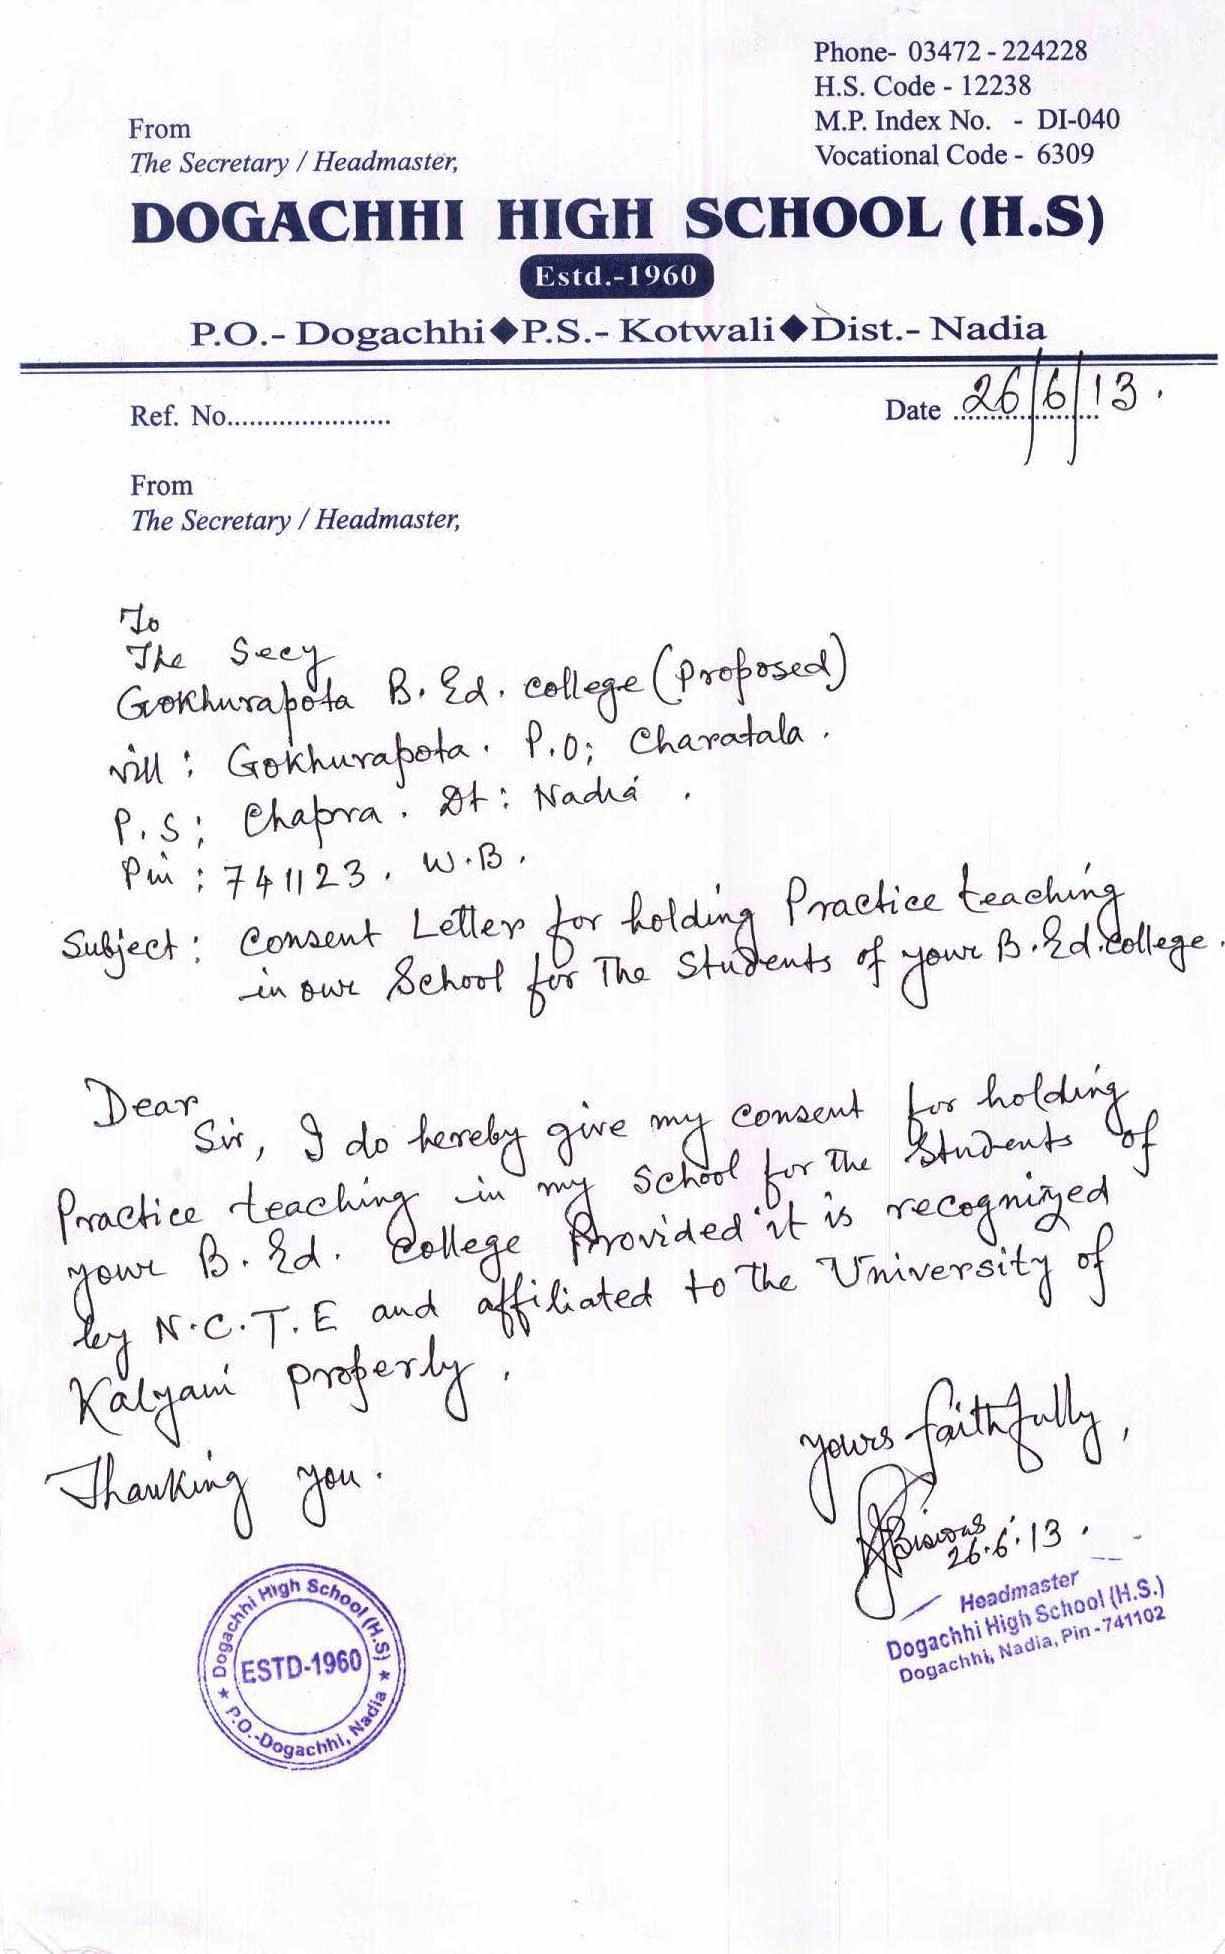 Phone- 03472 - 224228
H.S. Code - 12238
M.P. Index No. - DI-040
Vocational Code - 6309
From
The Secretary / Headmaster,
DOGACHHI HIGH SCHOOL (H.S)
Estd.-1960
P.O.- Dogachhi◆P.S.- Kotwali◆Dist.- Nadia
Ref. No......................
Date 26/6/13.
From
The Secretary / Headmaster,
To
The Secy
Gokhurapota B. Ed. college (Proposed)
vill : Gokhurapota. P.O; Charatala.
P.S; Chapra. Dt : Nadia.
Pin : 741123. W.B.
Subject : Consent Letter for holding Practice teaching
in our School for The Students of your B.Ed. college.
Dear
Sir, I do hereby give my consent for holding
Practice teaching in my School for The Students of
your B. Ed. College Provided it is recognized
by N.C.T.E and affiliated to The University of
Kalyani properly.
Thanking you.
yours faithfully,
Biswas
26.6.13.
Headmaster
Dogachhi High School (H.S.)
Dogachhi, Nadia, Pin-741102
Dogachhi High School (H.S)
ESTD-1960
★ P.O.-Dogachhi, Nadia ★